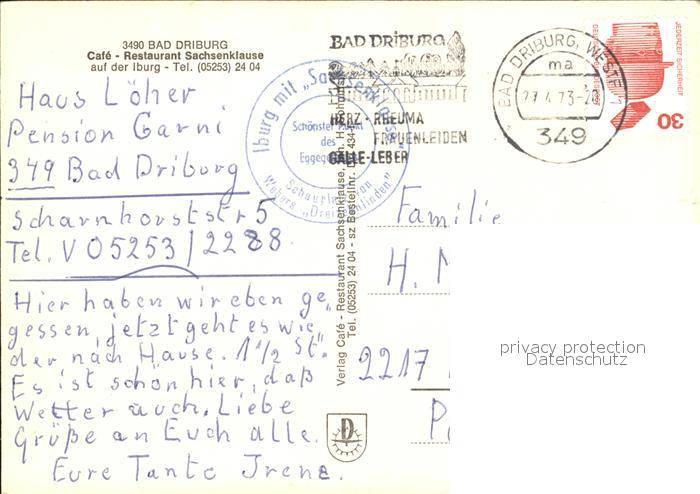 3490 BAD DRIBURG
Café - Restaurant Sachsenklause
auf der Iburg - Tel. (05253) 24 04
Haus Löher
Pension Garni
349 Bad Driburg
Scharnhorststr 5
Tel. V 05253/2288
Hier haben wir eben ge„
gessen, jetzt geht es wie
der nach Hause. 1 1/2 St.
Es ist schön hier, daß
Wetter auch. Liebe
Grüße an Euch alle.
Eure Tante Irene.
Iburg mit „Sachsenklause“
Schönster
des
Schauplatz von
Webers „Dreizehnlinden“
BAD DRIBURG
HERZ - RHEUMA
FRAUENLEIDEN
GALLE-LEBER
BAD DRIBURG, WESTF 1
ma
27.4.73-
349
JEDERZEIT SICHERHEIT
30
Verlag Café - Restaurant Sachsenklause,
Tel. (05253) 24 04 - sz Bestell.nr.
Familie
H.
2217
D
privacy protection
Datenschutz